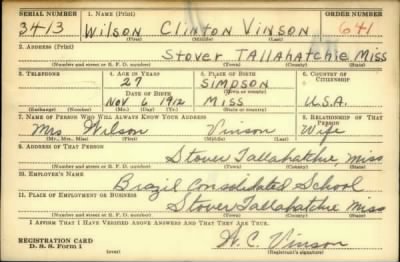 SERIAL NUMBER 1. NAME (Print) ORDER NUMBER
3413 Wilson Clinton Vinson 641
(First) (Middle) (Last)
2. ADDRESS (Print)
Stover Tallahatchie Miss
(Number and street or R. F. D. number) (Town) (County) (State)
3. TELEPHONE 4. AGE IN YEARS 5. PLACE OF BIRTH 6. COUNTRY OF CITIZENSHIP
27 Simpson
(Town or county)
DATE OF BIRTH
Nov 6 1912 Miss U.S.A.
(Exchange) (Number) (Mo.) (Day) (Yr.) (State or country)
7. NAME OF PERSON WHO WILL ALWAYS KNOW YOUR ADDRESS 8. RELATIONSHIP OF THAT PERSON
Mrs Wilson Vinson Wife
(Mr., Mrs., Miss) (First) (Middle) (Last)
9. ADDRESS OF THAT PERSON
Stover Tallahatchie, Miss
(Number and street or R. F. D. number) (Town) (County) (State)
10. EMPLOYER'S NAME
Brazil Consolidated School
11. PLACE OF EMPLOYMENT OR BUSINESS
Stover Tallahatchie Miss
(Number and street or R. F. D. number) (Town) (County) (State)
I AFFIRM THAT I HAVE VERIFIED ABOVE ANSWERS AND THAT THEY ARE TRUE.
REGISTRATION CARD
D. S. S. Form 1 W. C. Vinson